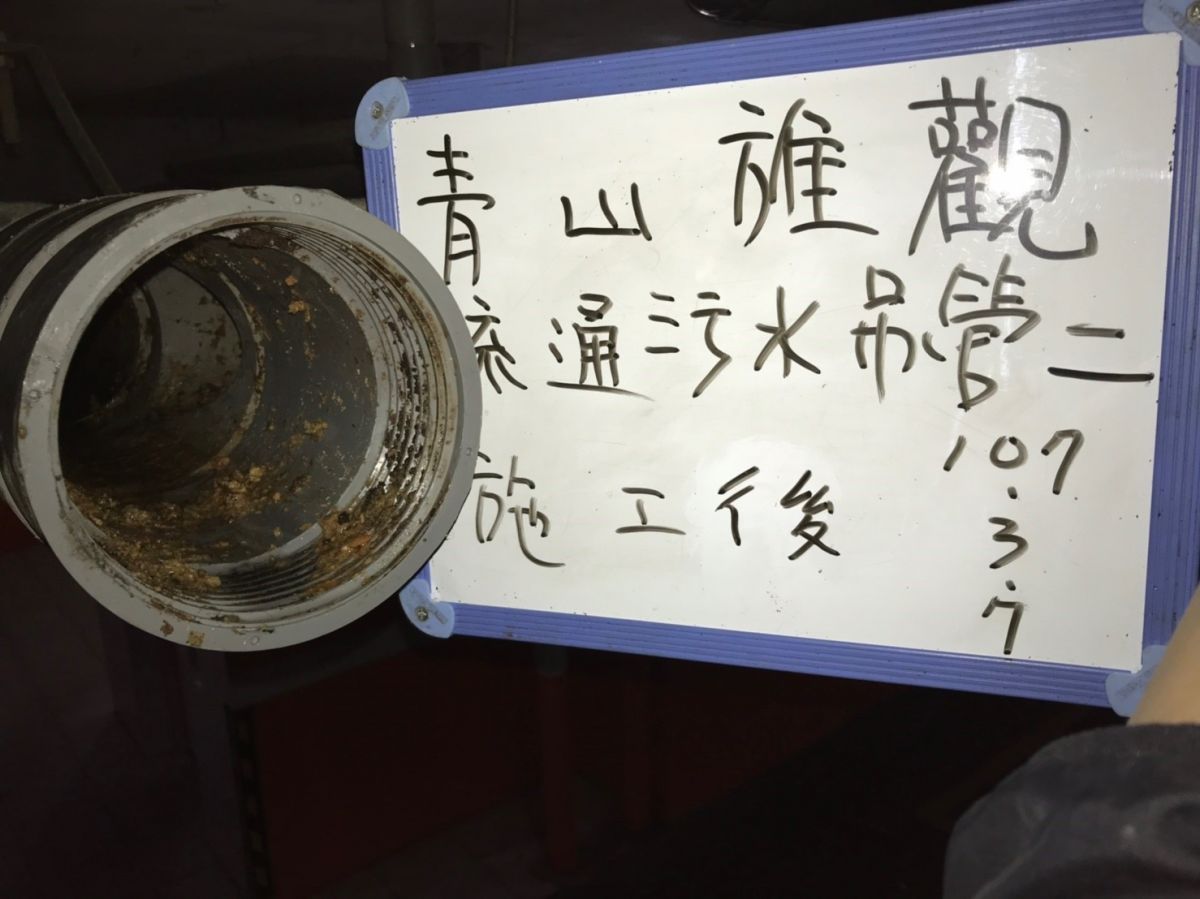 青山雅觀
疏通污水吊管二
施工後
107
.
3
.
7